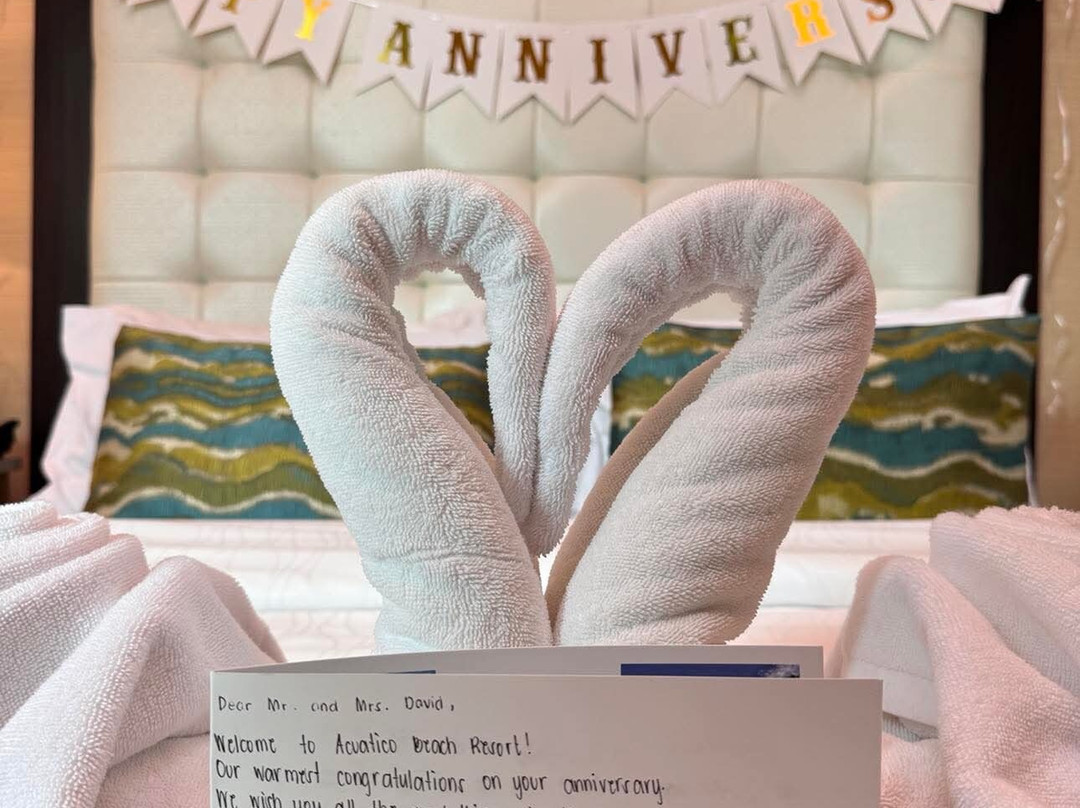 Y ANNIVERS
Dear Mr. and Mrs. David,
Welcome to Acuatico Beach Resort!
Our warmest congratulations on your anniversary.
We wish you all the